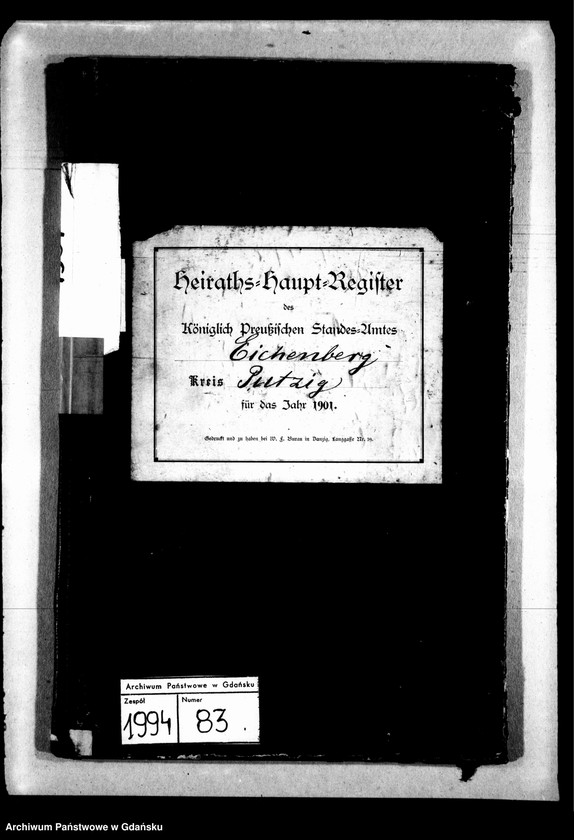 1901
Heiraths-Haupt-Register
des
Königlich Preußischen Standes-Amtes
Eichenberg
Kreis Putzig
für das Jahr 1901.
Gedruckt und zu haben bei W. F. Burau in Danzig, Langgasse Nr. 39.
Archiwum Państwowe w Gdańsku
Zespół Numer
1994 83.
Archiwum Państwowe w Gdańsku